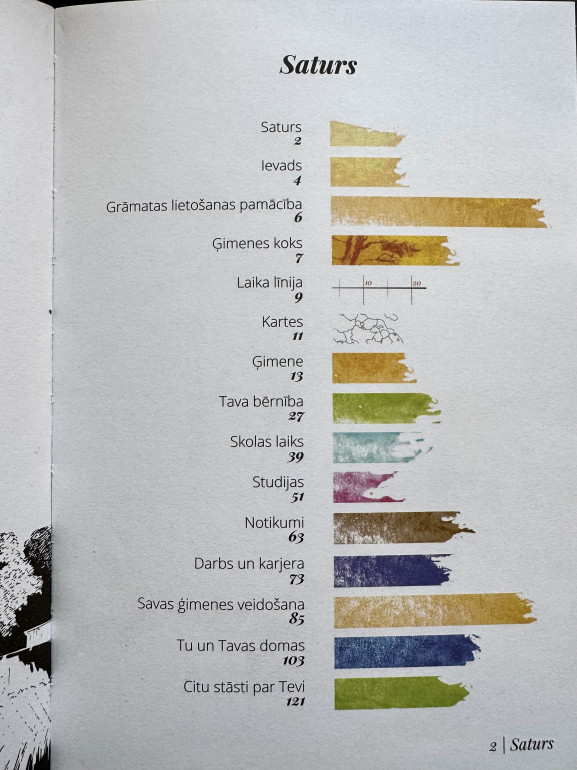 Saturs
Saturs
2
Ievads
4
Grāmatas lietošanas pamācība
6
Ģimenes koks
7
Laika līnija
9
10 20
Kartes
11
Ģimene
13
Tava bērnība
27
Skolas laiks
39
Studijas
51
Notikumi
63
Darbs un karjera
73
Savas ģimenes veidošana
85
Tu un Tavas domas
103
Citu stāsti par Tevi
121
2 | Saturs